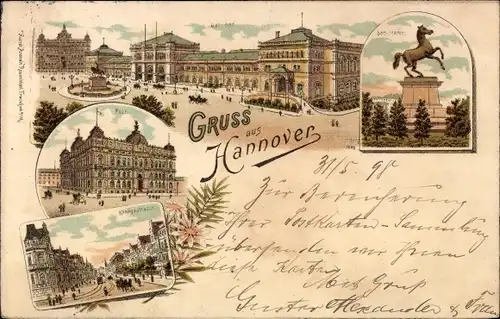 Bahnhof
Post
GRUSS
aus
Hannover
31/5. 98
Zur Bereicherung
Ihrer Postkarten-Sammlung
übersenden wir Ihnen
diese Karten
Mit Gruß
Gustav Alexander & Frau